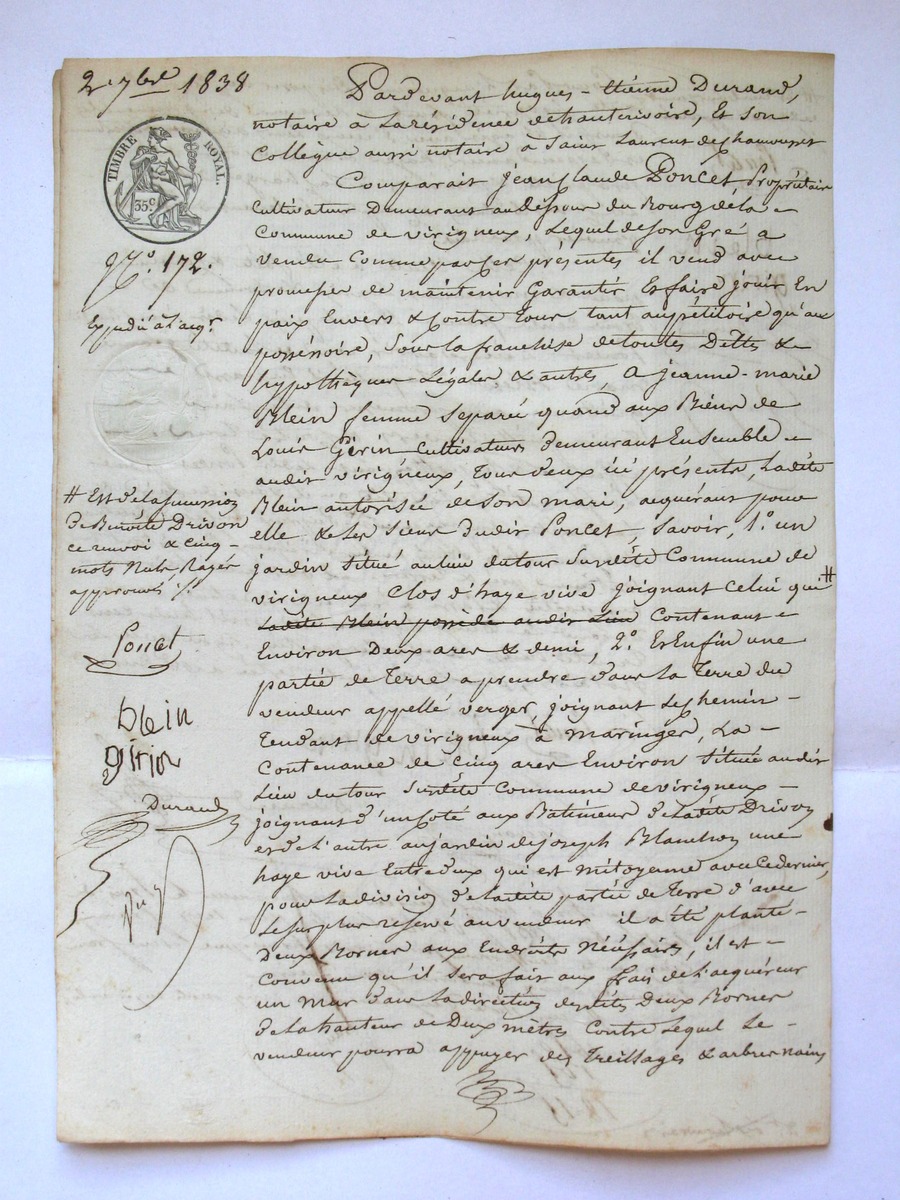 2 7bre 1838
TIMBRE ROYAL.
35c
No. 172.
Expédié à l'acqr
Pardevant hugues-étienne Durand,
notaire à la résidence de hauterivoire, Et son
Collègue aussi notaire à Saint Laurent de Chamousset
Comparait jean Claude Poncet, Propriétaire
Cultivateur Demeurant au Dessour du Bourg de la
Commune de virigneux, Lequel de Son Gré a
vendu Comme par Ses présentes il vend avec
promesse de maintenir Garantir Et faire jouir En
paix Envers & Contre tous tant au pétitoire qu'au
possessoire, Sous la franchise de toutes Dettes &
hypothèques Légales & autres, à jeanne-marie
Blein femme Separée quand aux Biens de
Louis Gérin Cultivateurs Demeurant Ensemble
audit virigneux, Tous Deux ici présents, Ladite
Blein autorisée de Son mari, acquérant pour
elle & Les Siens Dudit Poncet, Savoir, 1.o un
jardin Situé au lieu du tour Susdite Commune de
virigneux Clos d'haye vive joignant Celui qui #
Ladite Blein possède audit Lieu Contenant
Environ Deux ares & demi, 2.o Et Enfin une
partie de Terre a prendre dans La Terre du
vendeur appellé verger, joignant Le Chemin
Tendant de virigneux à Maringes, La
Contenance de Cinq ares Environ Située audit
Lieu du tour Susdite Commune de virigneux
joignant d'un Coté aux Batimens de Ladite Drivon
et de L'autre au jardin de joseph Blanchon une
haye vive Entredeux qui est mitoyenne avec Ce dernier,
pour La division de Ladite partie de Terre d'avec
Le Surplus reservé au vendeur il a été planté
Deux Bornes aux Endroits Nécessaires, il est
Convenu qu'il Sera fait aux frais de L'acquéreur
un Mur dans La direction desdites Deux Bornes
de La hauteur de Deux mètres Contre Lequel Le
vendeur pourra appuyer des Treillages & arbres nains
# Est de la Succession
de Benoîte Drivon
ce renvoi & Cinq
mots Nuls Rayés
approuvés ./.
Poncet
blein
gérin
Durand